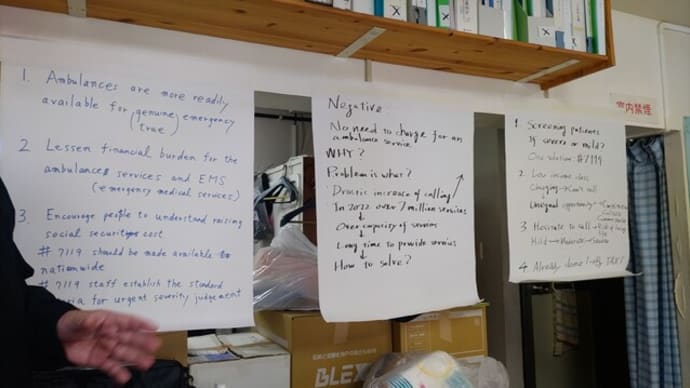 1. Ambulances are more readily
available for (genuine) emergency
true
2 Lessen financial burden for the
ambulances services and EMS
(emergency medical services)
3. Encourage people to understand raising
social security cost
# 7119 should be made available
nationwide
# 7119 staff establish the standard
for urgent severity judgement
Negative
No need to charge for an
ambulance service
WHY?
Problem is what?
Drastic increase of calling
In 2022 over 7 million services
Over capacity of services
Long time to provide services
How to solve?
1. Screening patients
If severe or mild?
One solution: #7119
2. Low income class
Charging → Can't call
Unequal opportunity →
3 Hesitate to call → Risk of
Mild → Moderate → Severe
4. Already done! →
室内禁煙
BLE